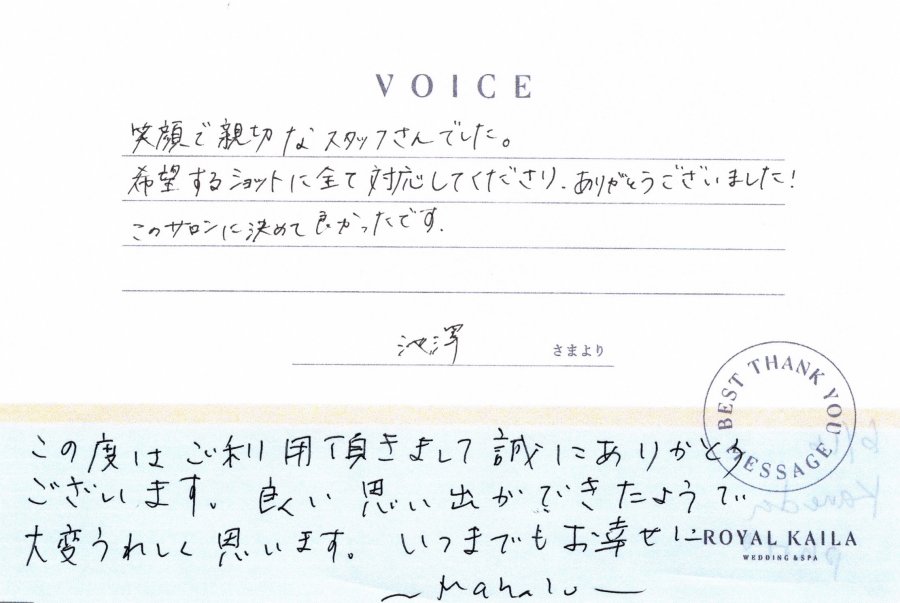 VOICE
笑顔で親切なスタッフさんでした。
希望するショットに全て対応してくださり、ありがとうございました！
このサロンに決めて良かったです。
池澤
さまより
BEST THANK YOU MESSAGE
この度はご利用頂きまして誠にありがとう
ございます。良い思い出ができたようで
大変うれしく思います。いつまでもお幸せに
ROYAL KAILA
WEDDING & SPA
〜Mahalo〜